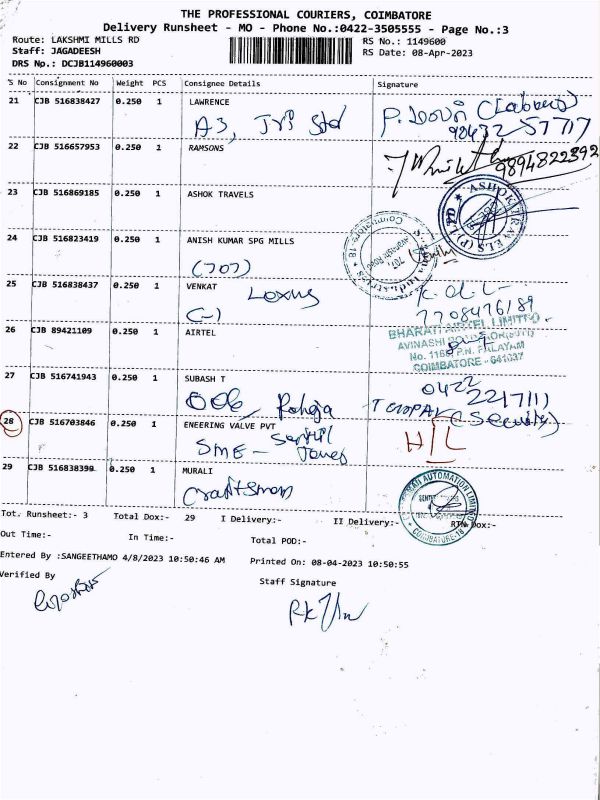 THE PROFESSIONAL COURIERS, COIMBATORE
Delivery Runsheet - MO - Phone No.:0422-3505555 - Page No.:3
Route: LAKSHMI MILLS RD RS No.: 1149600
Staff: JAGADEESH RS Date: 08-Apr-2023
DRS Np.: DCJB114960003
S No Consignment No Weight PCS Consignee Details Signature
21 CJB 516838427 0.250 1 LAWRENCE
A3,
98432 57717
22 CJB 516657953 0.250 1 RAMSONS
9894822392
23 CJB 516869185 0.250 1 ASHOK TRAVELS
ASHOK TRAVELS (P) LTD
24 CJB 516823419 0.250 1 ANISH KUMAR SPG MILLS
(707)
Coimbatore-18
707, Avinashi Road
25 CJB 516838437 0.250 1 VENKAT
7708476189
26 CJB 89421109 0.250 1 AIRTEL
BHARTI AIRTEL LIMITED
AVINASHI ROAD
P.N. PALAYAM
COIMBATORE - 641037
27 CJB 516741943 0.250 1 SUBASH T
0422
2217111
(Security)
28 CJB 516703846 0.250 1 ENEERING VALVE PVT
SME - Senthil
H/L
29 CJB 516838398 0.250 1 MURALI
Craftsman
CRAFTSMAN AUTOMATION LIMITED
COIMBATORE-18
Tot. Runsheet:- 3 Total Dox:- 29 I Delivery:- II Delivery:- RTN Dox:-
Out Time:- In Time:- Total POD:-
Entered By :SANGEETHAMO 4/8/2023 10:50:46 AM Printed On: 08-04-2023 10:50:55
Verified By Staff Signature